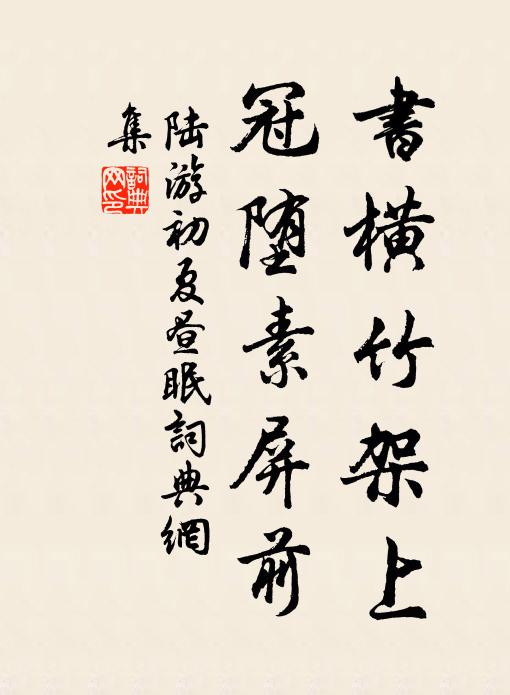 書橫竹架上
冠墮素屏前
陸游初夏昼眠詞典網
集
詞典
网印